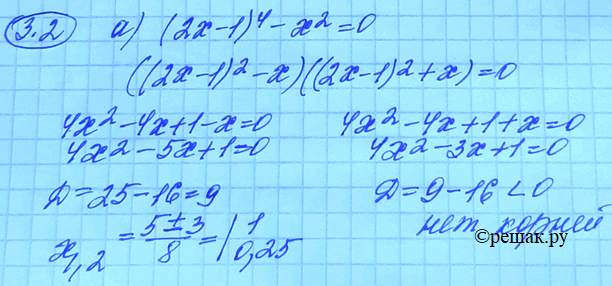 3.2 а) (2x-1)⁴-x²=0
((2x-1)²-x)((2x-1)²+x)=0
4x²-4x+1-x=0
4x²-5x+1=0
Д=25-16=9
x₁,₂ = 5±3/8 = | 1 0,25
4x²-4x+1+x=0
4x²-3x+1=0
Д=9-16<0
нет корней
©решак.ру